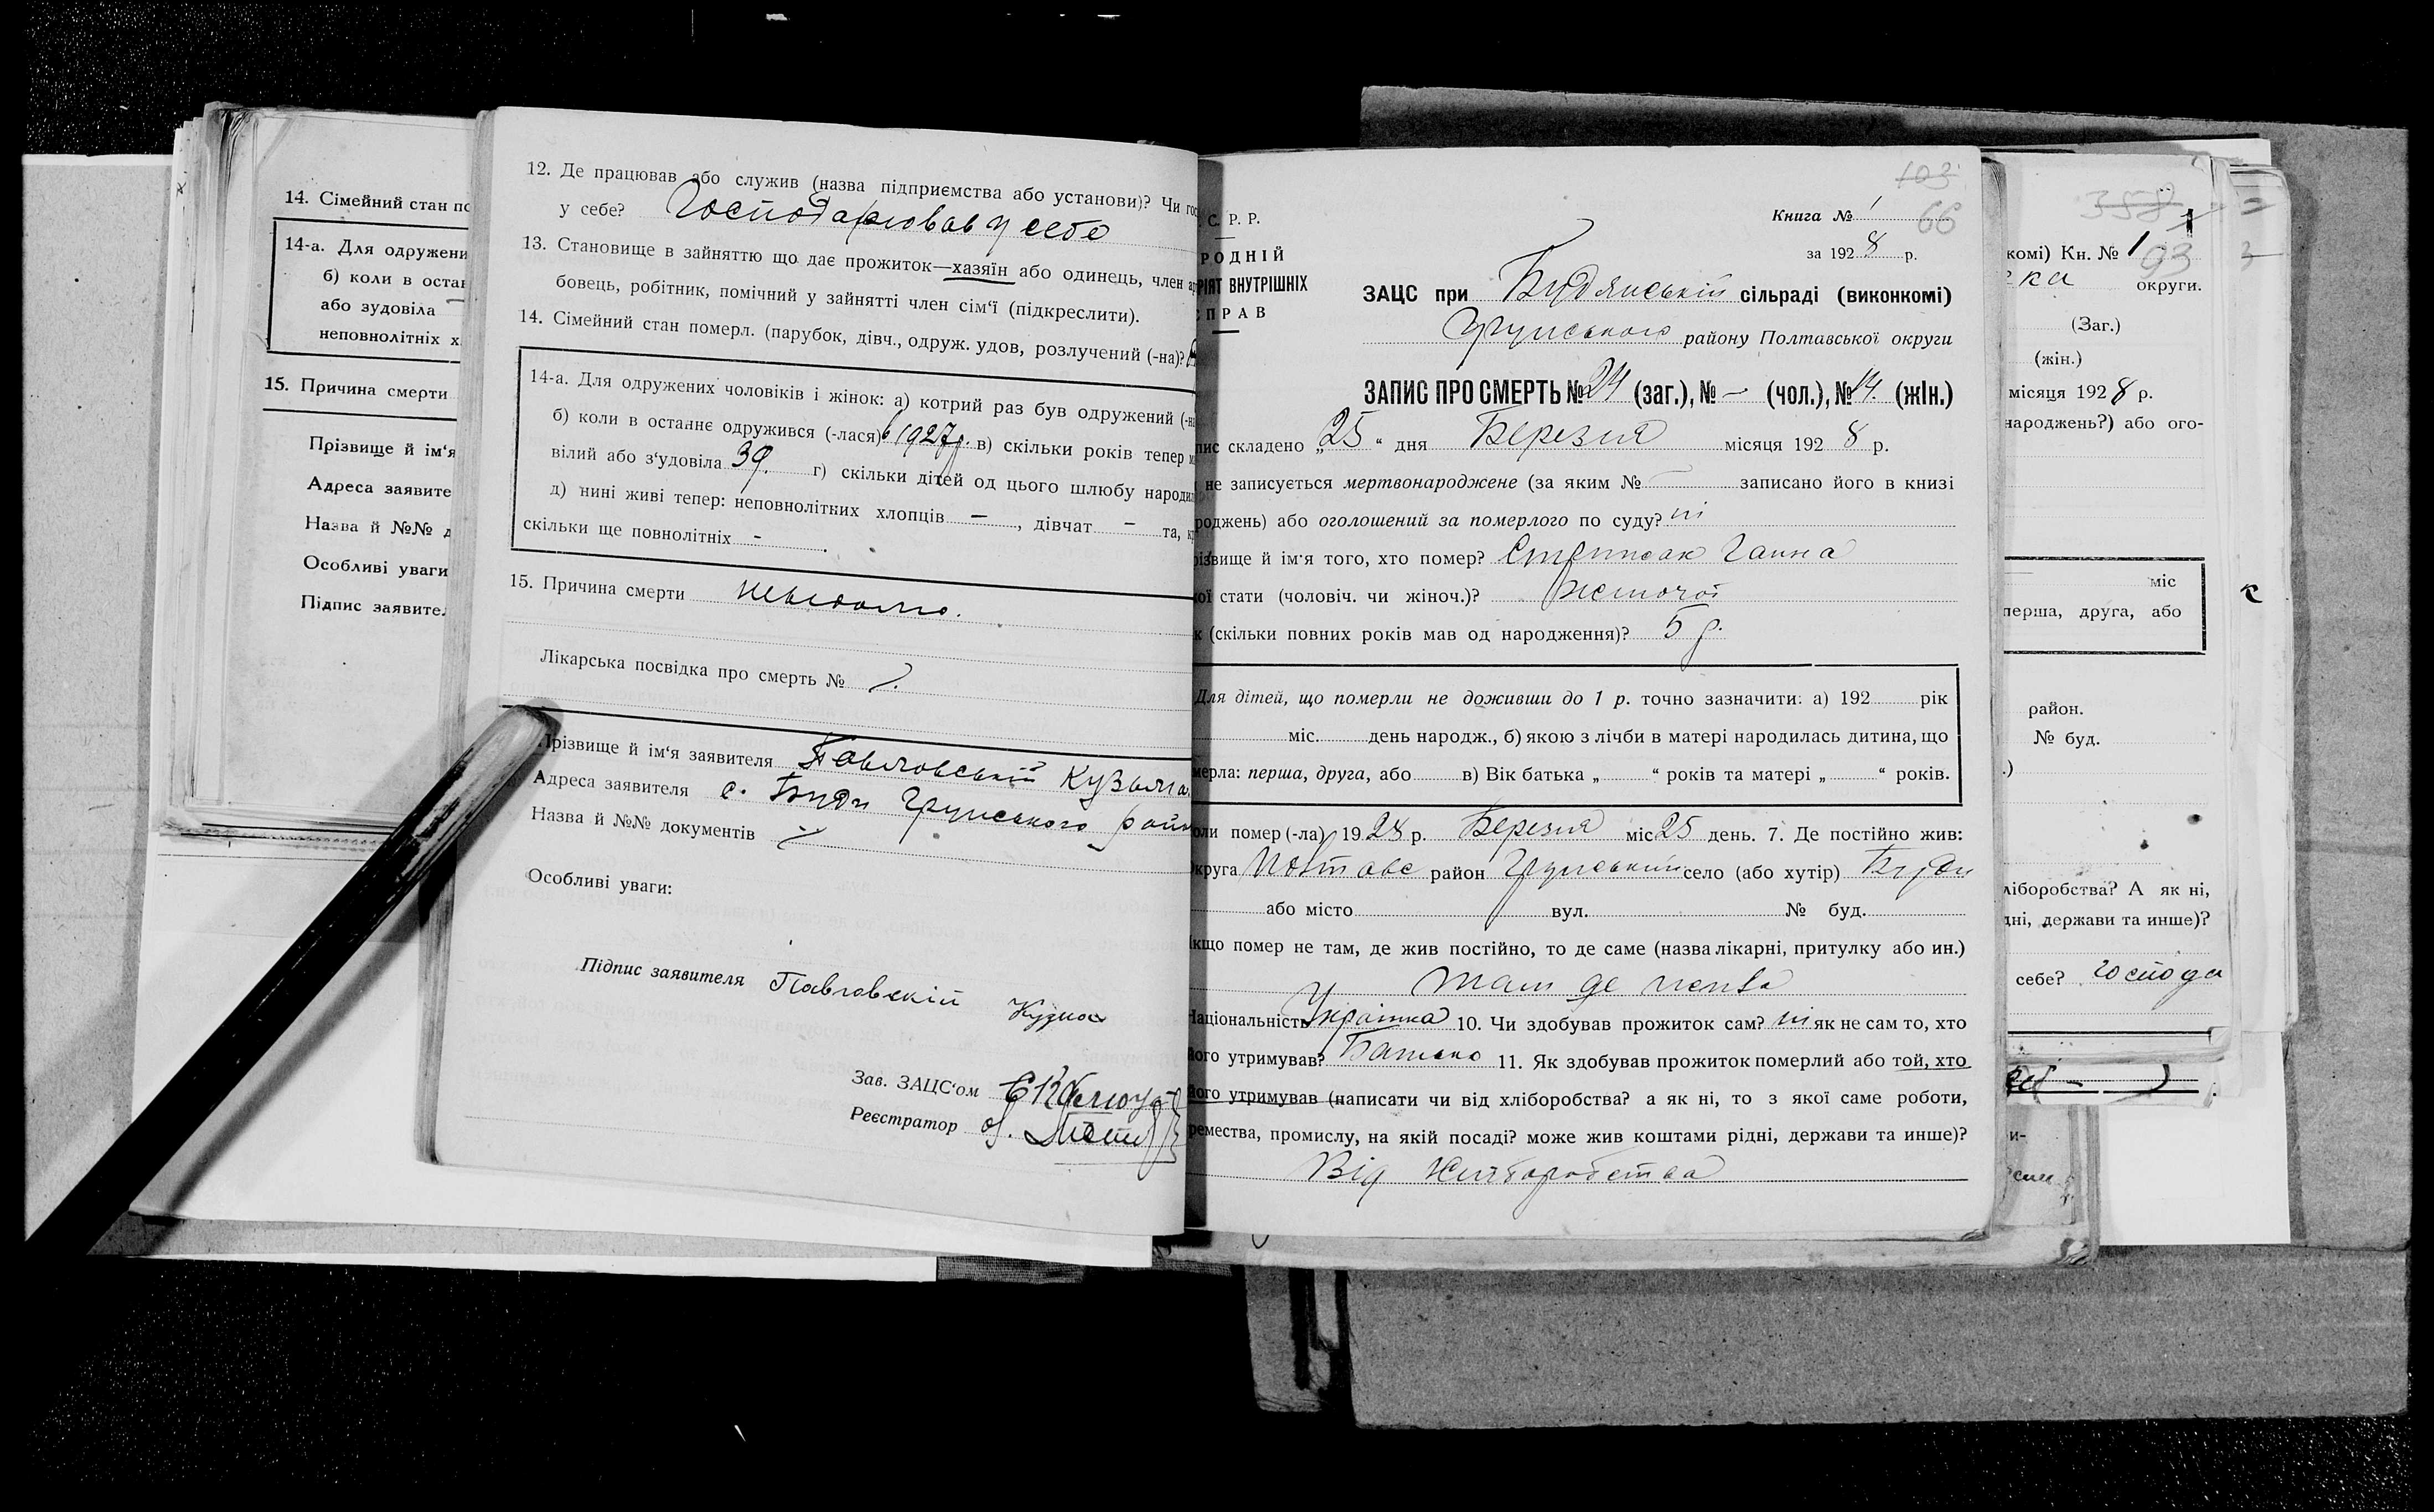 14. Сімейний стан по
14-а. Для одружени
б) коли в остан
або зудовіла —
неповнолітніх х
15. Причина смерти
Прізвище й ім‘я
Адреса заявите
Назва й №№ д
Особливі уваги
Підпис заявител
12. Де працював або служив (назва підприємства або установи)? Чи гос
у себе? Господарював у себе
13. Становище в зайняттю що дає прожиток—хазяїн або одинець, член ар
бовець, робітник, помічний у зайнятті член сім‘ї (підкреслити).
14. Сімейний стан померл. (парубок, дівч., одруж. удов, розлучений (-на)?
14-а. Для одружених чоловіків і жінок: а) котрий раз був одружений (-на
б) коли в останнє одружився (-лася) в 1927 р. в) скільки років тепер м
вілий або з‘удовіла 39. г) скільки дітей од цього шлюбу народил
д) нині живі тепер: неповнолітних хлопців —, дівчат — та, к
скільки ще повнолітніх - .
15. Причина смерти невідомо.
Лікарська посвідка про смерть №
Прізвище й ім‘я заявителя Павловський Кузьма
Адреса заявителя с. Буди Грунського райо
Назва й №№ документів
Особливі уваги:
Підпис заявителя Павловскій Кузма
Зав. ЗАЦС‘ом
Реєстратор
С. Р. Р.
РОДНІЙ
РІЯТ ВНУТРІШНІХ
ПРАВ
103
Книга № 1 66
за 192 8 р.
ЗАЦС при Будянській сільраді (виконкомі)
Грунського району Полтавської округи
ЗАПИС ПРО СМЕРТЬ № 24 (заг.), № — (чол.), № 14. (жін.)
пис складено „25“ дня Березня місяця 192 8 р.
не записується мертвонароджене (за яким № — записано його в книзі
роджень) або оголошений за померлого по суду? ні
різвище й ім‘я того, хто помер? Ганна
кої стати (чоловіч. чи жіноч.)? жіночої
к (скільки повних років мав од народження)? 5 р.
Для дітей, що померли не доживши до 1 р. точно зазначити: а) 192 рік
міс. день народж., б) якою з лічби в матері народилась дитина, що
мерла: перша, друга, або в) Вік батька „ “ років та матері „ “ років.
оли помер (-ла) 1928 р. Березня міс 25 день. 7. Де постійно жив:
круга Полтавс район Грунський село (або хутір) Буди
або місто вул. № буд.
кщо помер не там, де жив постійно, то де саме (назва лікарні, притулку або ин.)
там де жила
Національність Українка 10. Чи здобував прожиток сам? ні як не сам то, хто
його утримував? Батько 11. Як здобував прожиток померлий або той, хто
його утримував (написати чи від хліборобства? а як ні, то з якої саме роботи,
ремества, промислу, на якій посаді? може жив коштами рідні, держави та инше)?
Від Хліборобства
358
комі) Кн. № 1 93
ка округи.
(Заг.)
(жін.)
місяця 192 8 р.
народжень?) або ого-
міс
перша, друга, або
район.
№ буд.
ліборобства? А як ні,
дні, держави та инше)?
себе? господа